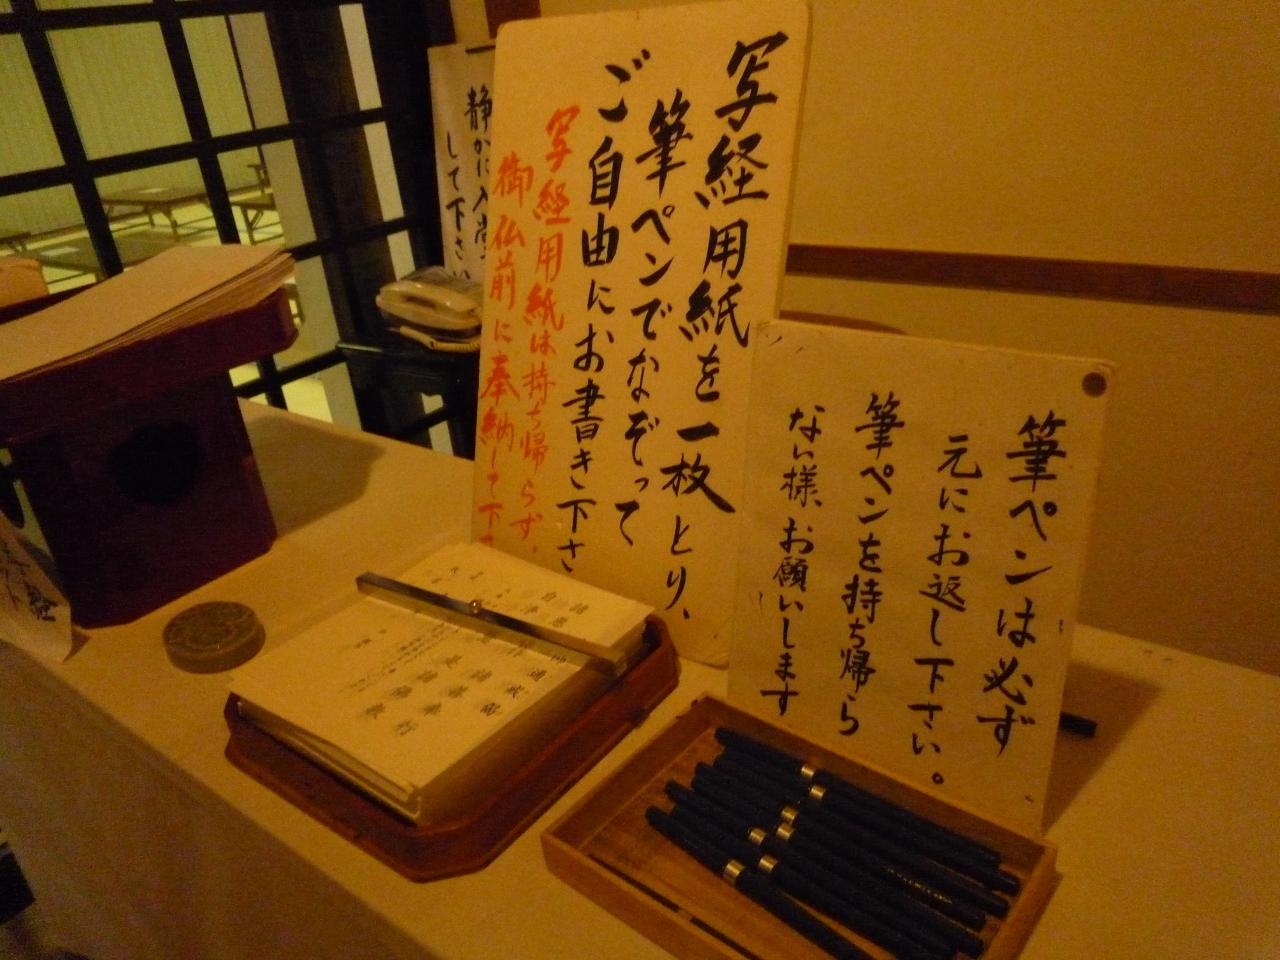 写経用紙を一枚とり、
筆ペンでなぞって
ご自由にお書き下さ
写経用紙は持ち帰らず、
御仏前に奉納して下
筆ペンは必ず
元にお返し下さい。
筆ペンを持ち帰ら
ない様、お願いします
静かに入堂
して下さい
諸悪莫作
衆善奉行
自浄其意
是諸佛教